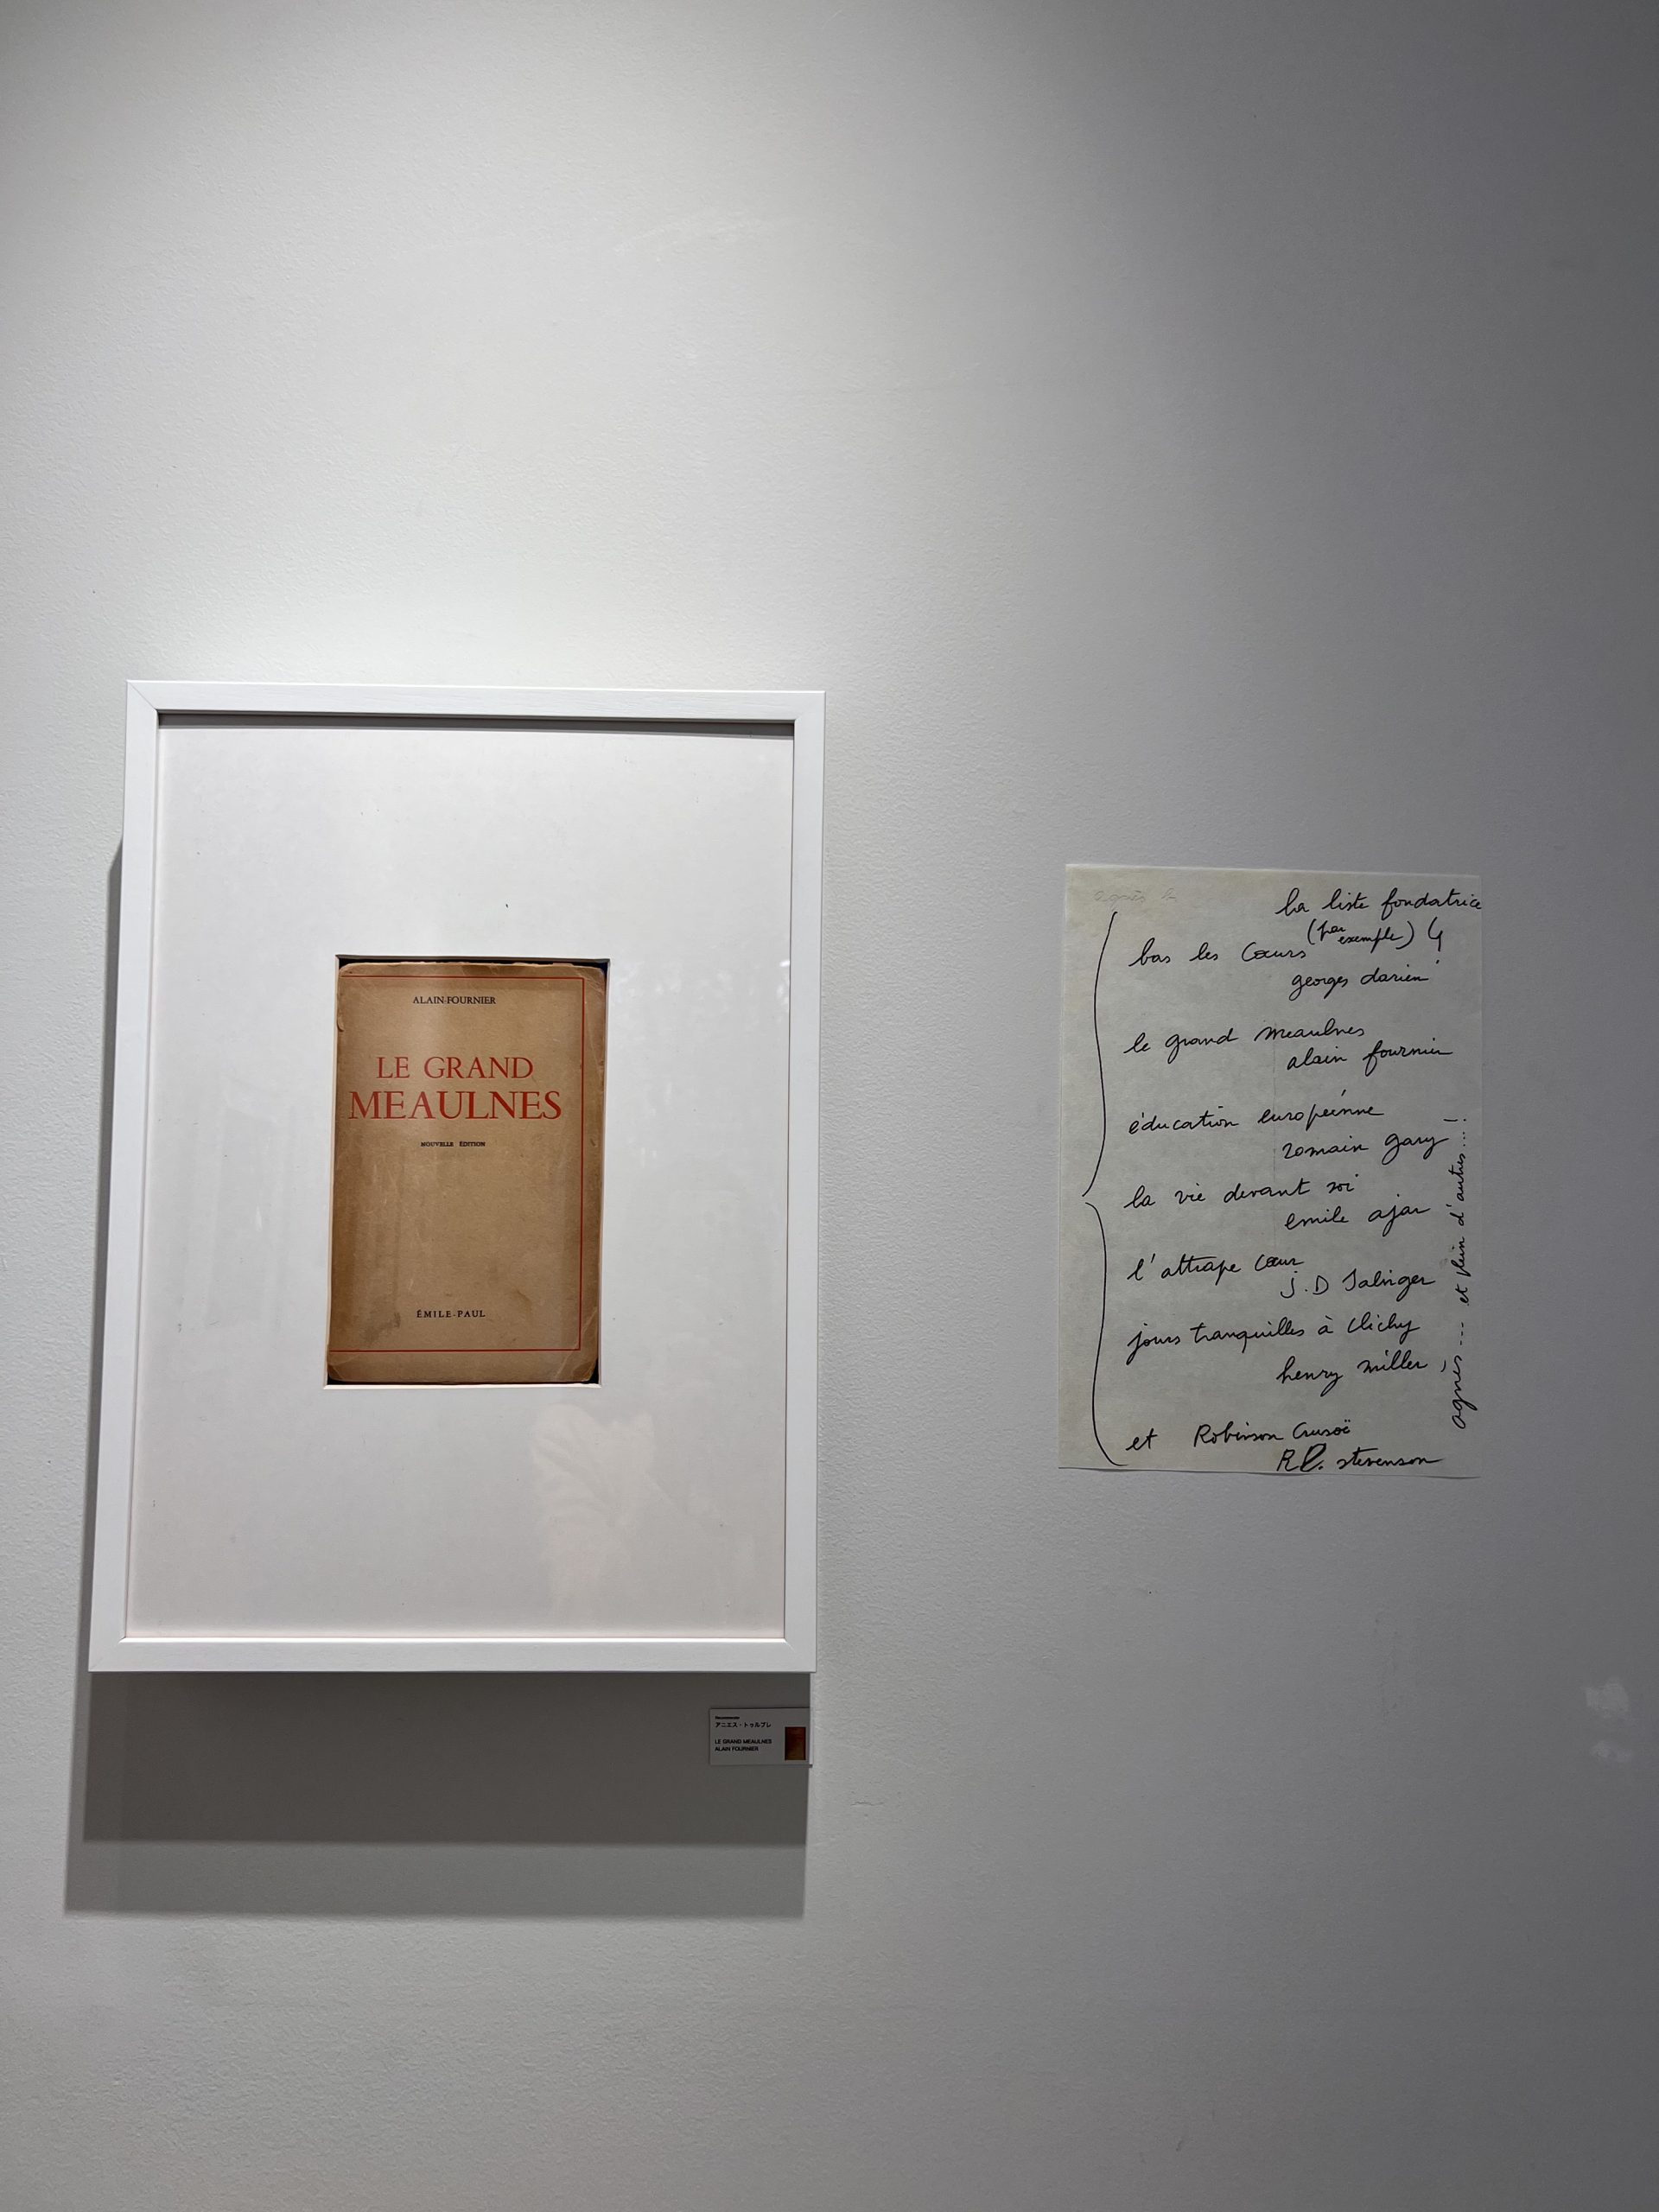 ALAIN-FOURNIER
LE GRAND
MEAULNES
NOUVELLE ÉDITION
ÉMILE-PAUL
アニエス・トゥルブレ
LE GRAND MEAULNES
ALAIN FOURNIER
agnès b
la liste fondatrice
(par exemple)
bas les Cœurs
georges darien
le grand meaulnes
alain fournier
éducation européenne
romain gary
la vie devant soi
emile ajar
l'attrape cœur
j.D Salinger
jours tranquilles à Clichy
henry miller
et Robinson Crusoë
RL. stevenson
agnès--- et plein d'autres...!